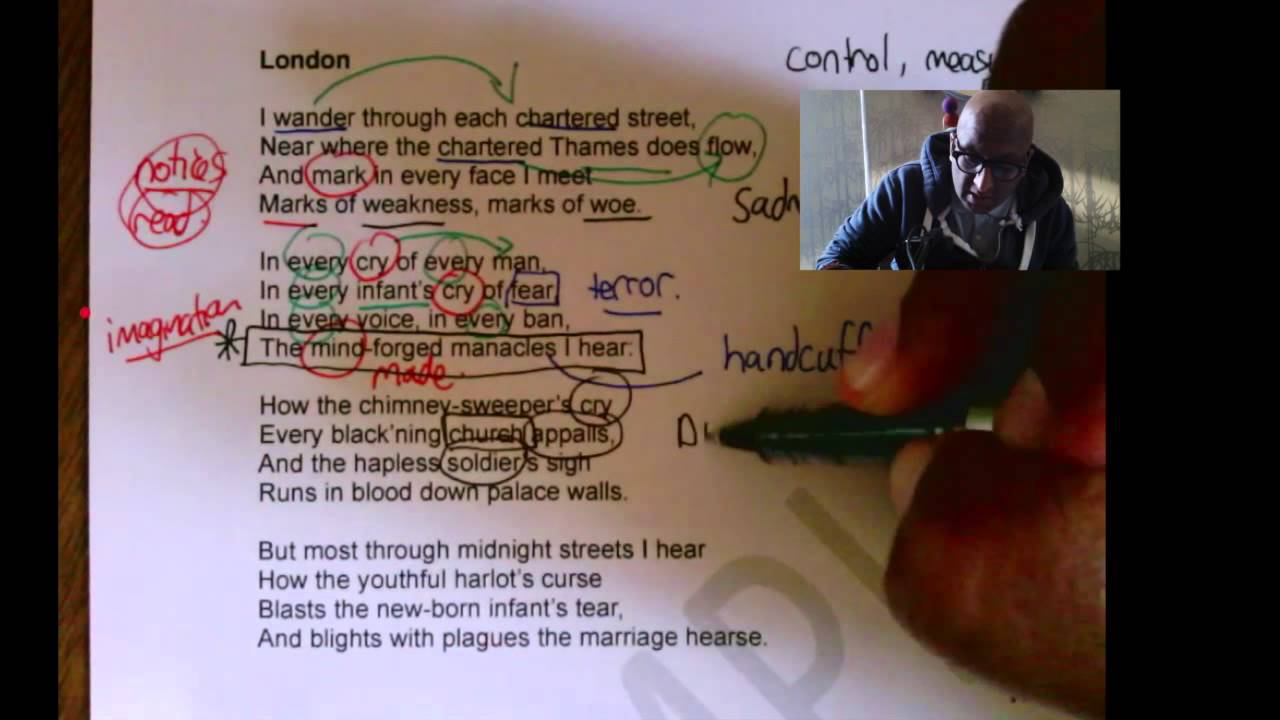 London
control,
I wander through each chartered street,
Near where the chartered Thames does flow,
notices
And mark in every face I meet
read
Marks of weakness, marks of woe.
In every cry of every man,
In every infant's cry of fear,
terror.
imagination
In every voice, in every ban,
* The mind-forged manacles I hear:
made
How the chimney-sweeper's cry
Every black'ning church appalls,
And the hapless soldier's sigh
Runs in blood down palace walls.
But most through midnight streets I hear
How the youthful harlot's curse
Blasts the new-born infant's tear,
And blights with plagues the marriage hearse.